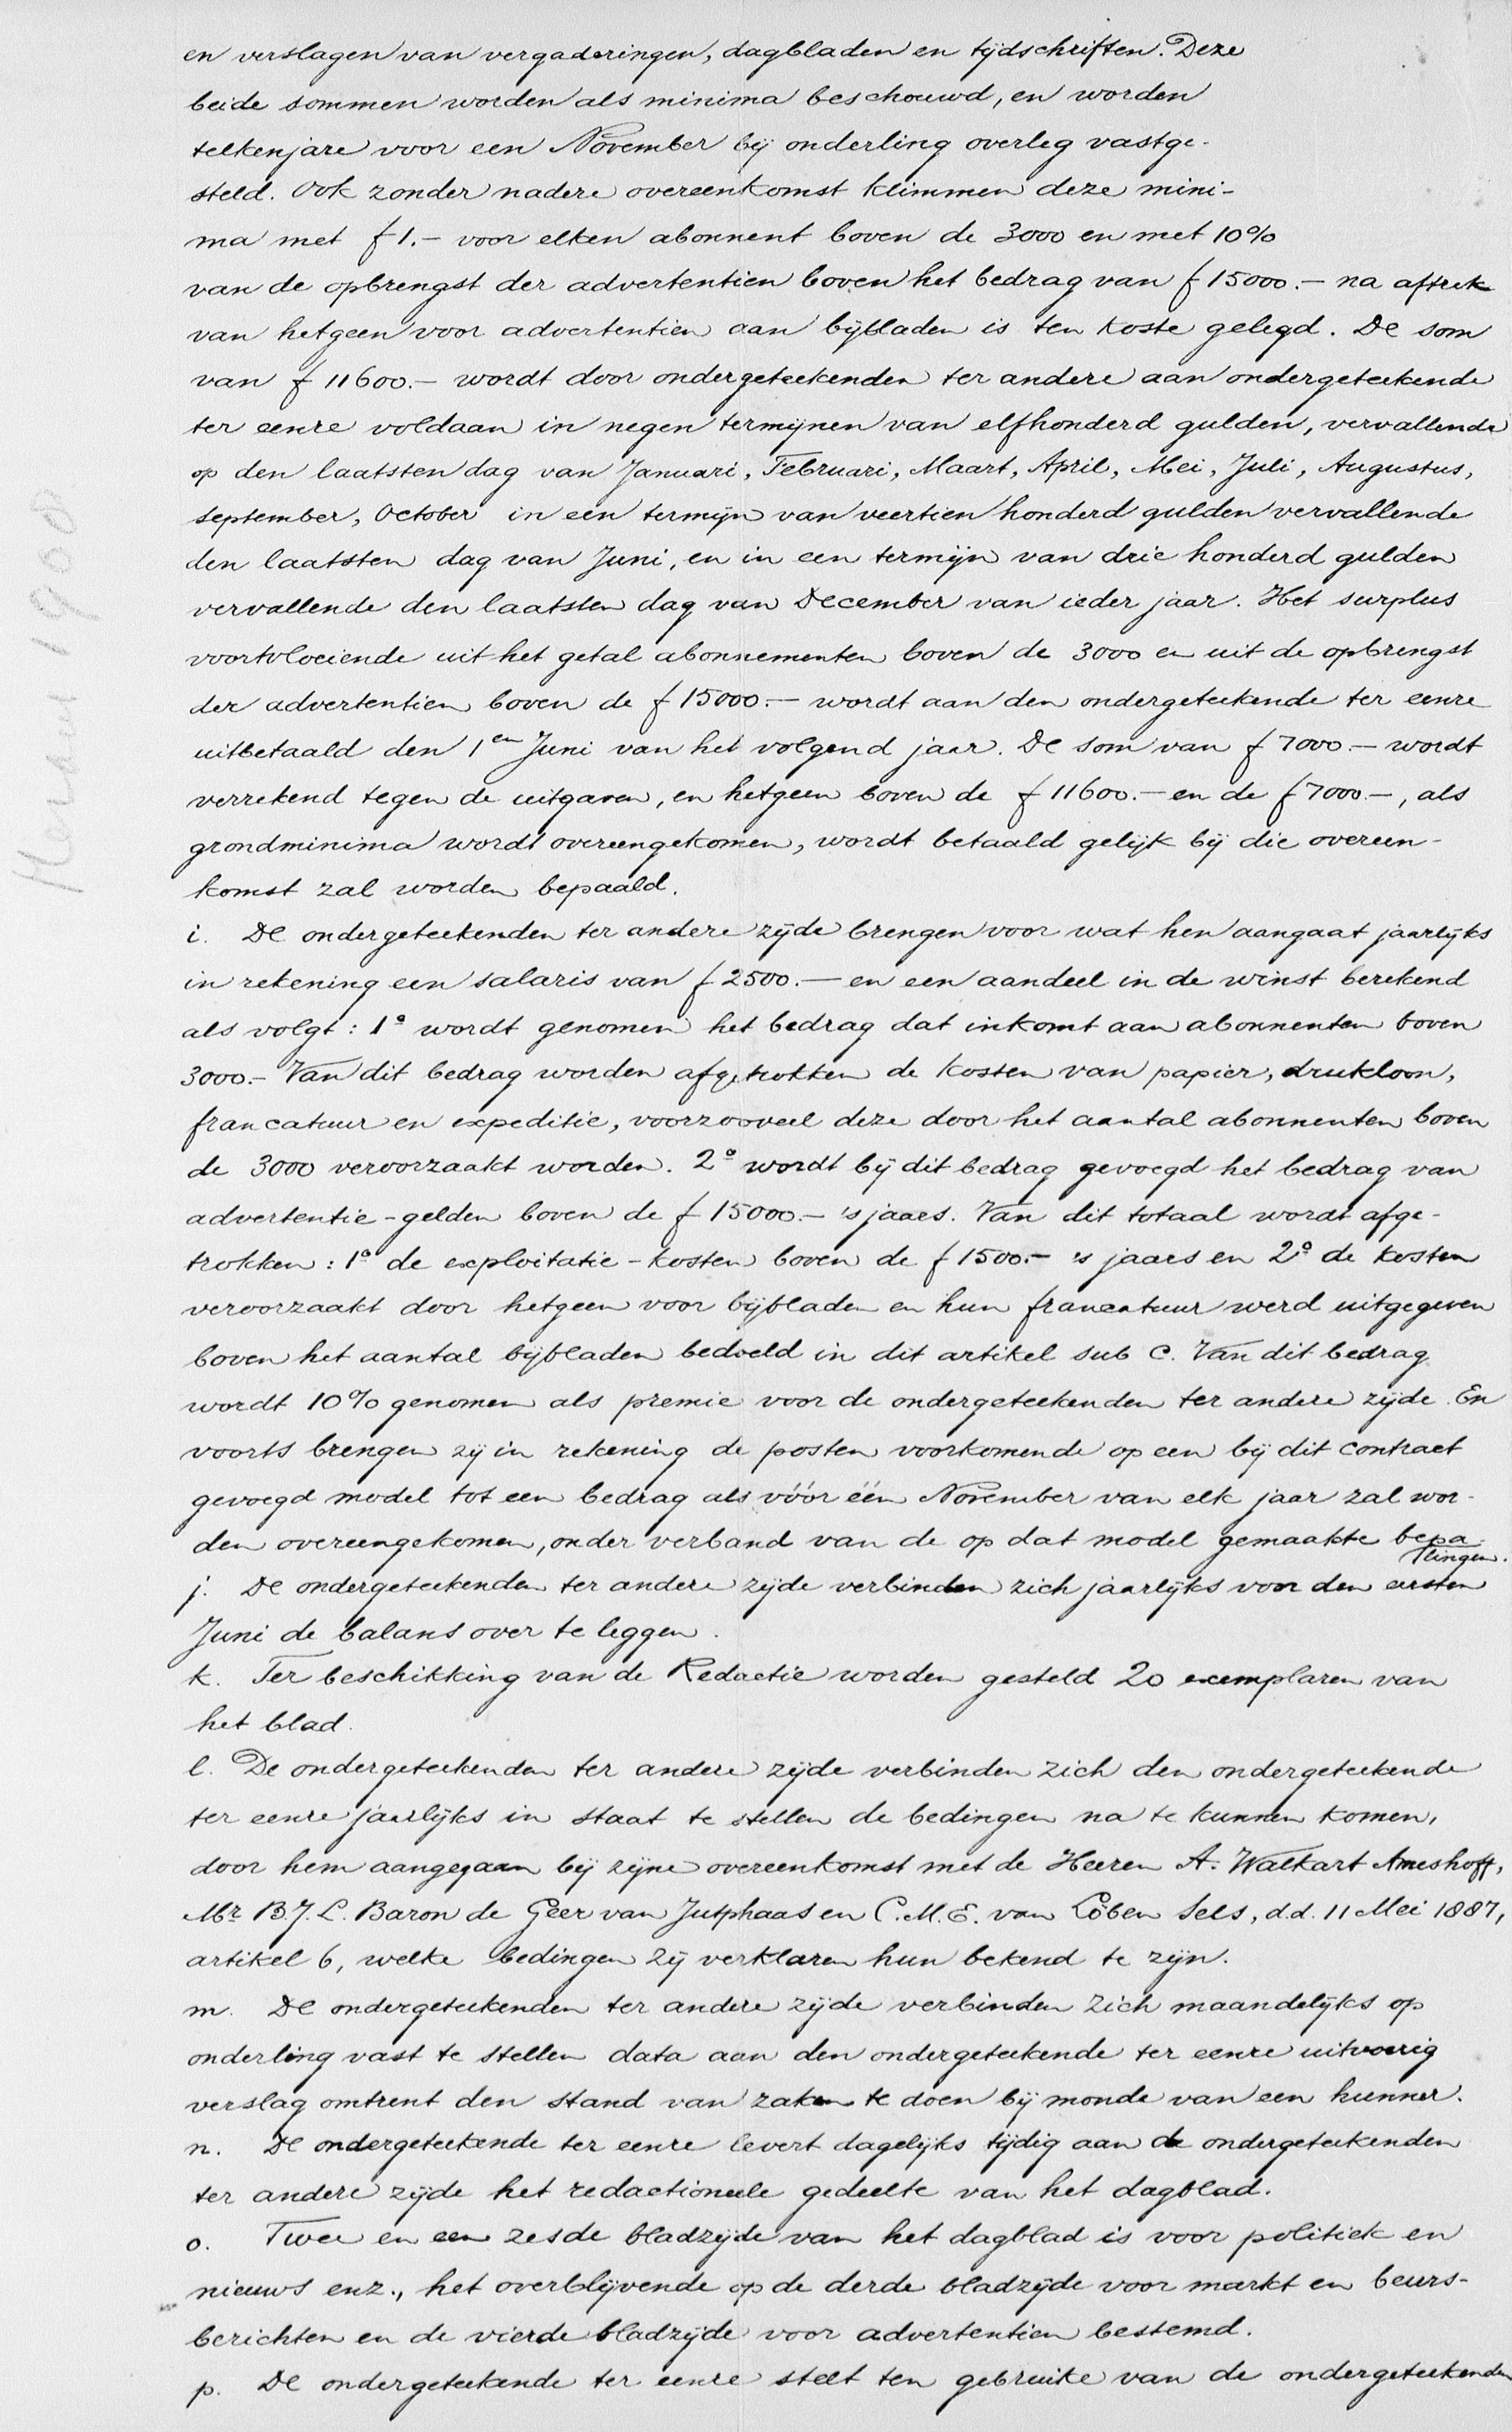 en verslagen van vergaderingen, dagbladen en tijdschriften. Deze
beide sommen worden als minima beschouwd, en worden
telkenjare voor een November bij onderling overleg vastge-
steld. Ook zonder nadere overeenkomst klimmen deze mini-
ma met f 1.- voor elken abonnent boven de 3000 en met 10%
van de opbrengst der advertentien boven het bedrag van f 15000.- na aftrek
van hetgeen voor advertentien aan bijbladen is ten koste gelegd. De som
van f 11600.- wordt door ondergeteekenden ter andere aan ondergeteekende
ter eenre voldaan in negen termijnen van elfhonderd gulden, vervallende
op den laatsten dag van Januari, Februari, Maart, April, Mei, Juli, Augustus,
September, October in een termijn van veertien honderd gulden vervallende
den laatsten dag van Juni, en in een termijn van drie honderd gulden
vervallende den laatsten dag van December van ieder jaar. Het surplus
voortvloeiende uit het getal abonnementen boven de 3000 en uit de opbrengst
der advertentien boven de f 15000.- wordt aan den ondergeteekende ter eenre
uitbetaald den 1en Juni van het volgend jaar. De som van f 7000.- wordt
verrekend tegen de uitgaven, en hetgeen boven de f 11600.- en de f 7000.-, als
grondminima wordt overeengekomen, wordt betaald gelijk bij die overeen-
komst zal worden bepaald.
i. De ondergeteekenden ter andere zijde brengen voor wat hen aangaat jaarlijks
in rekening een salaris van f 2500.- en een aandeel in de winst berekend
als volgt: 1° wordt genomen het bedrag dat inkomt aan abonnenten boven
3000.- Van dit bedrag worden afgetrokken de kosten van papier, drukloon,
francatuur en expeditie, voorzooveel deze door het aantal abonnenten boven
de 3000 veroorzaakt worden. 2° wordt bij dit bedrag gevoegd het bedrag van
advertentie-gelden boven de f 15000.- 's jaars. Van dit totaal wordt afge-
trokken: 1° de exploitatie-kosten boven de f 1500.- 's jaars en 2° de kosten
veroorzaakt door hetgeen voor bijbladen en hun francatuur werd uitgegeven
boven het aantal bijbladen bedoeld in dit artikel sub C. Van dit bedrag
wordt 10% genomen als premie voor de ondergeteekenden ter andere zijde. En
voorts brengen zij in rekening de posten voorkomende op een bij dit contract
gevoegd model tot een bedrag als vóór één November van elk jaar zal wor-
den overeengekomen, onder verband van de op dat model gemaakte bepa
lingen.
j. De ondergeteekenden ter andere zijde verbinden zich jaarlijks voor den eersten
Juni de balans over te leggen.
k. Ter beschikking van de Redactie worden gesteld 20 exemplaren van
het blad.
l. De ondergeteekenden ter andere zijde verbinden zich den ondergeteekende
ter eenre jaarlijks in staat te stellen de bedingen na te kunnen komen,
door hem aangegaan bij zijne overeenkomst met de Heeren A. Walkart Ameshoff,
Mr B.J.L. Baron de Geer van Jutphaas en C.M.E. van Löben Sels, d.d. 11 Mei 1887,
artikel 6, welke bedingen zij verklaren hun bekend te zijn.
m. De ondergeteekenden ter andere zijde verbinden zich maandelijks op
onderling vast te stellen data aan den ondergeteekende ter eenre uitvoerig
verslag omtrent den stand van zaken te doen bij monde van een hunner.
n. De ondergeteekende ter eenre levert dagelijks tijdig aan de ondergeteekenden
ter andere zijde het redactioneele gedeelte van het dagblad.
o. Twee en een zesde bladzijde van het dagblad is voor politiek en
nieuws enz., het overblijvende op de derde bladzijde voor markt en beurs-
berichten en de vierde bladzijde voor advertentien bestemd.
p. De ondergeteekende ter eenre stelt ten gebruike van de ondergeteekenden